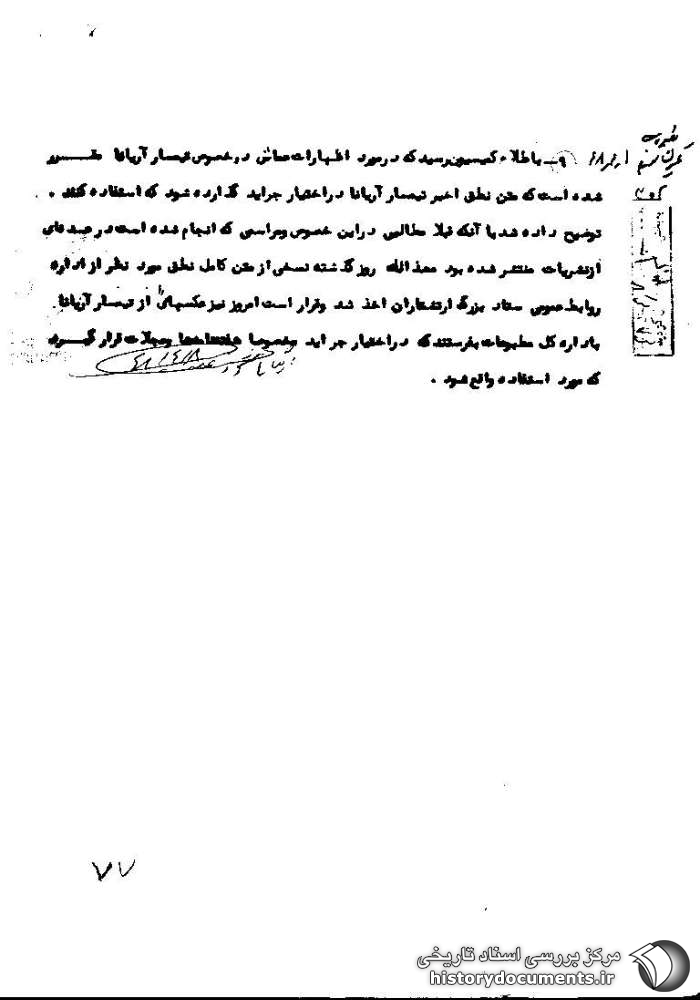 ۹ـ باطلاع کمیسیون رسید که در مورد اظهارات صاش در خصوص تیمسار آریانا مقرر
شده است که متن نطق اخیر تیمسار آریانا در اختیار جراید گذارده شود که استفاده کنند .
توضیح داده شد با آنکه قبلا مطالبی در این خصوص وبراسی که انجام شده است در عده‌ای
از نشریات منتشر شده بود معذالک روز گذشته نسخی از متن کامل نطق مورد نظر از اداره
روابط عمومی ستاد بزرگ ارتشتاران اخذ شد وقرار است امروز نیز عکسهائی از تیمسار آریانا
باداره کل مطبوعات بفرستند که در اختیار جراید وخصوصا هفتنامه‌ها ومجلات قرار گیرد
که مورد استفاده واقع شود .
۷۷
مرکز بررسی اسناد تاریخی
historydocuments.ir